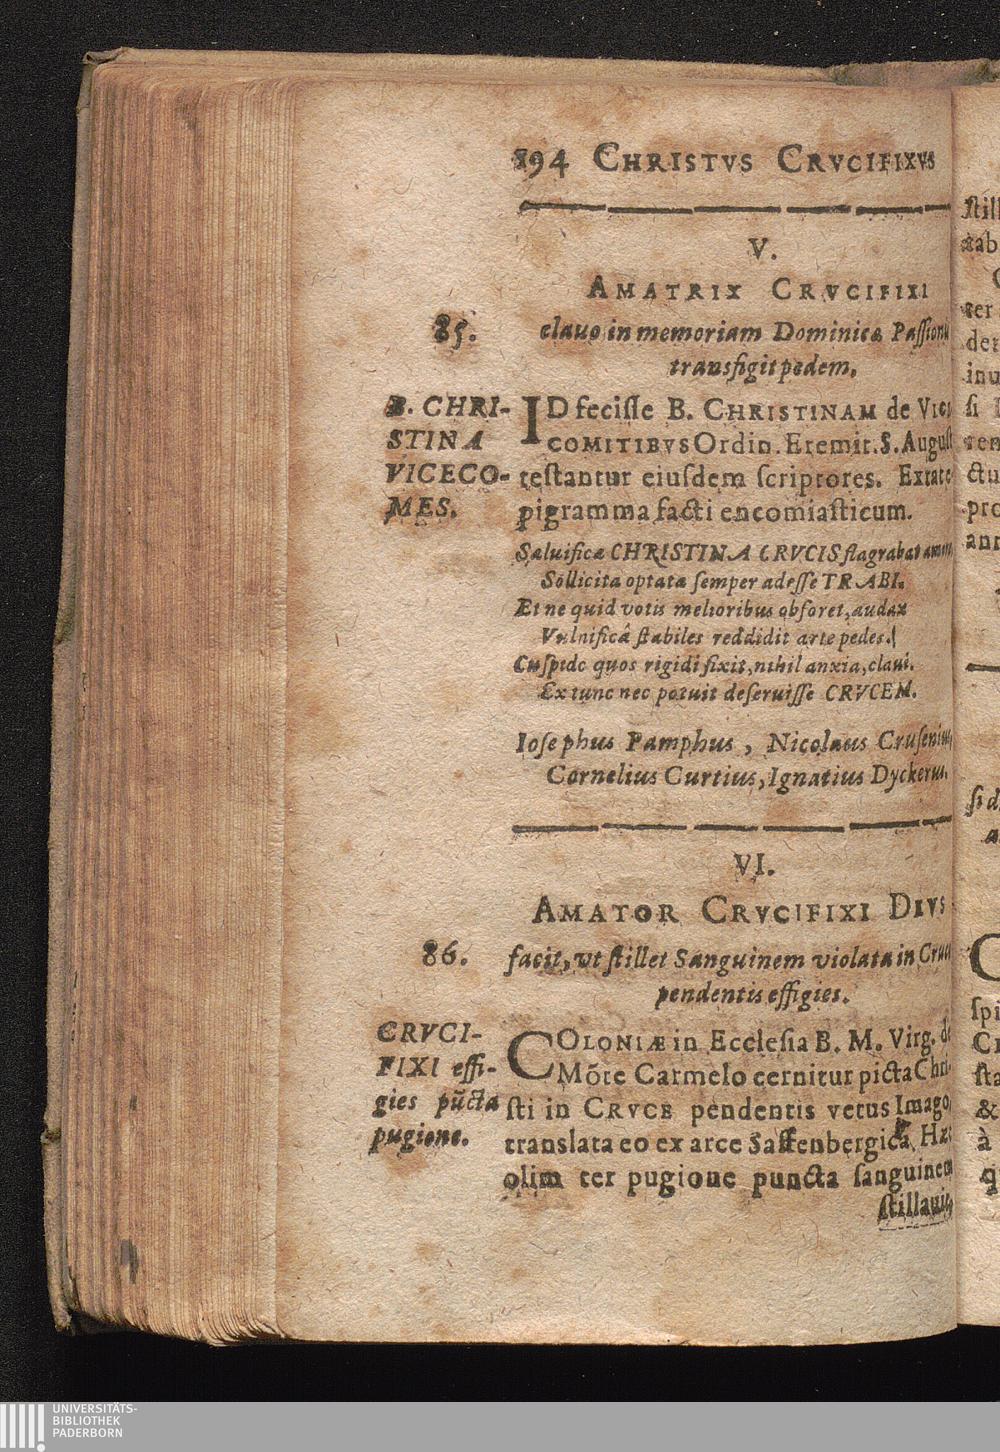 194 CHRISTVS CRVCIFIXVS
V.
AMATRIX CRVCIFIXI
85.
clauo in memoriam Dominicæ Passionis
transfigit pedem.
B. CHRI-
STINA
VICECO-
MES.
ID fecisse B. CHRISTINAM de VICE
COMITIBVS Ordin. Eremit. S. August
testantur eiusdem scriptores. Extat e
pigramma facti encomiasticum.
Saluificæ CHRISTINA CRVCIS flagrabat amore
Sollicita optatæ semper adesse TRABI.
Et ne quid votis melioribus obforet, audax
Vulnificâ stabiles reddidit arte pedes.
Cuspide quos rigidi fixit, nihil anxia, claui.
Ex tunc nec potuit deseruisse CRVCEM.
Iosephus Pamphus, Nicolaus Crusenius,
Cornelius Curtius, Ignatius Dyckerus.
VI.
AMATOR CRVCIFIXI DIVS
86.
facit, vt stillet Sanguinem violata in Cruce
pendentis effigies.
CRVCI-
FIXI effi-
gies pũcta
pugione.
COLONIÆ in Ecclesia B. M. Virg. de
Mõte Carmelo cernitur picta Chri-
sti in CRVCE pendentis vetus Imago,
translata eo ex arce Saffenbergica. Hæc
olim ter pugione puncta sanguinem
stillauit,
UNIVERSITÄTS-
BIBLIOTHEK
PADERBORN